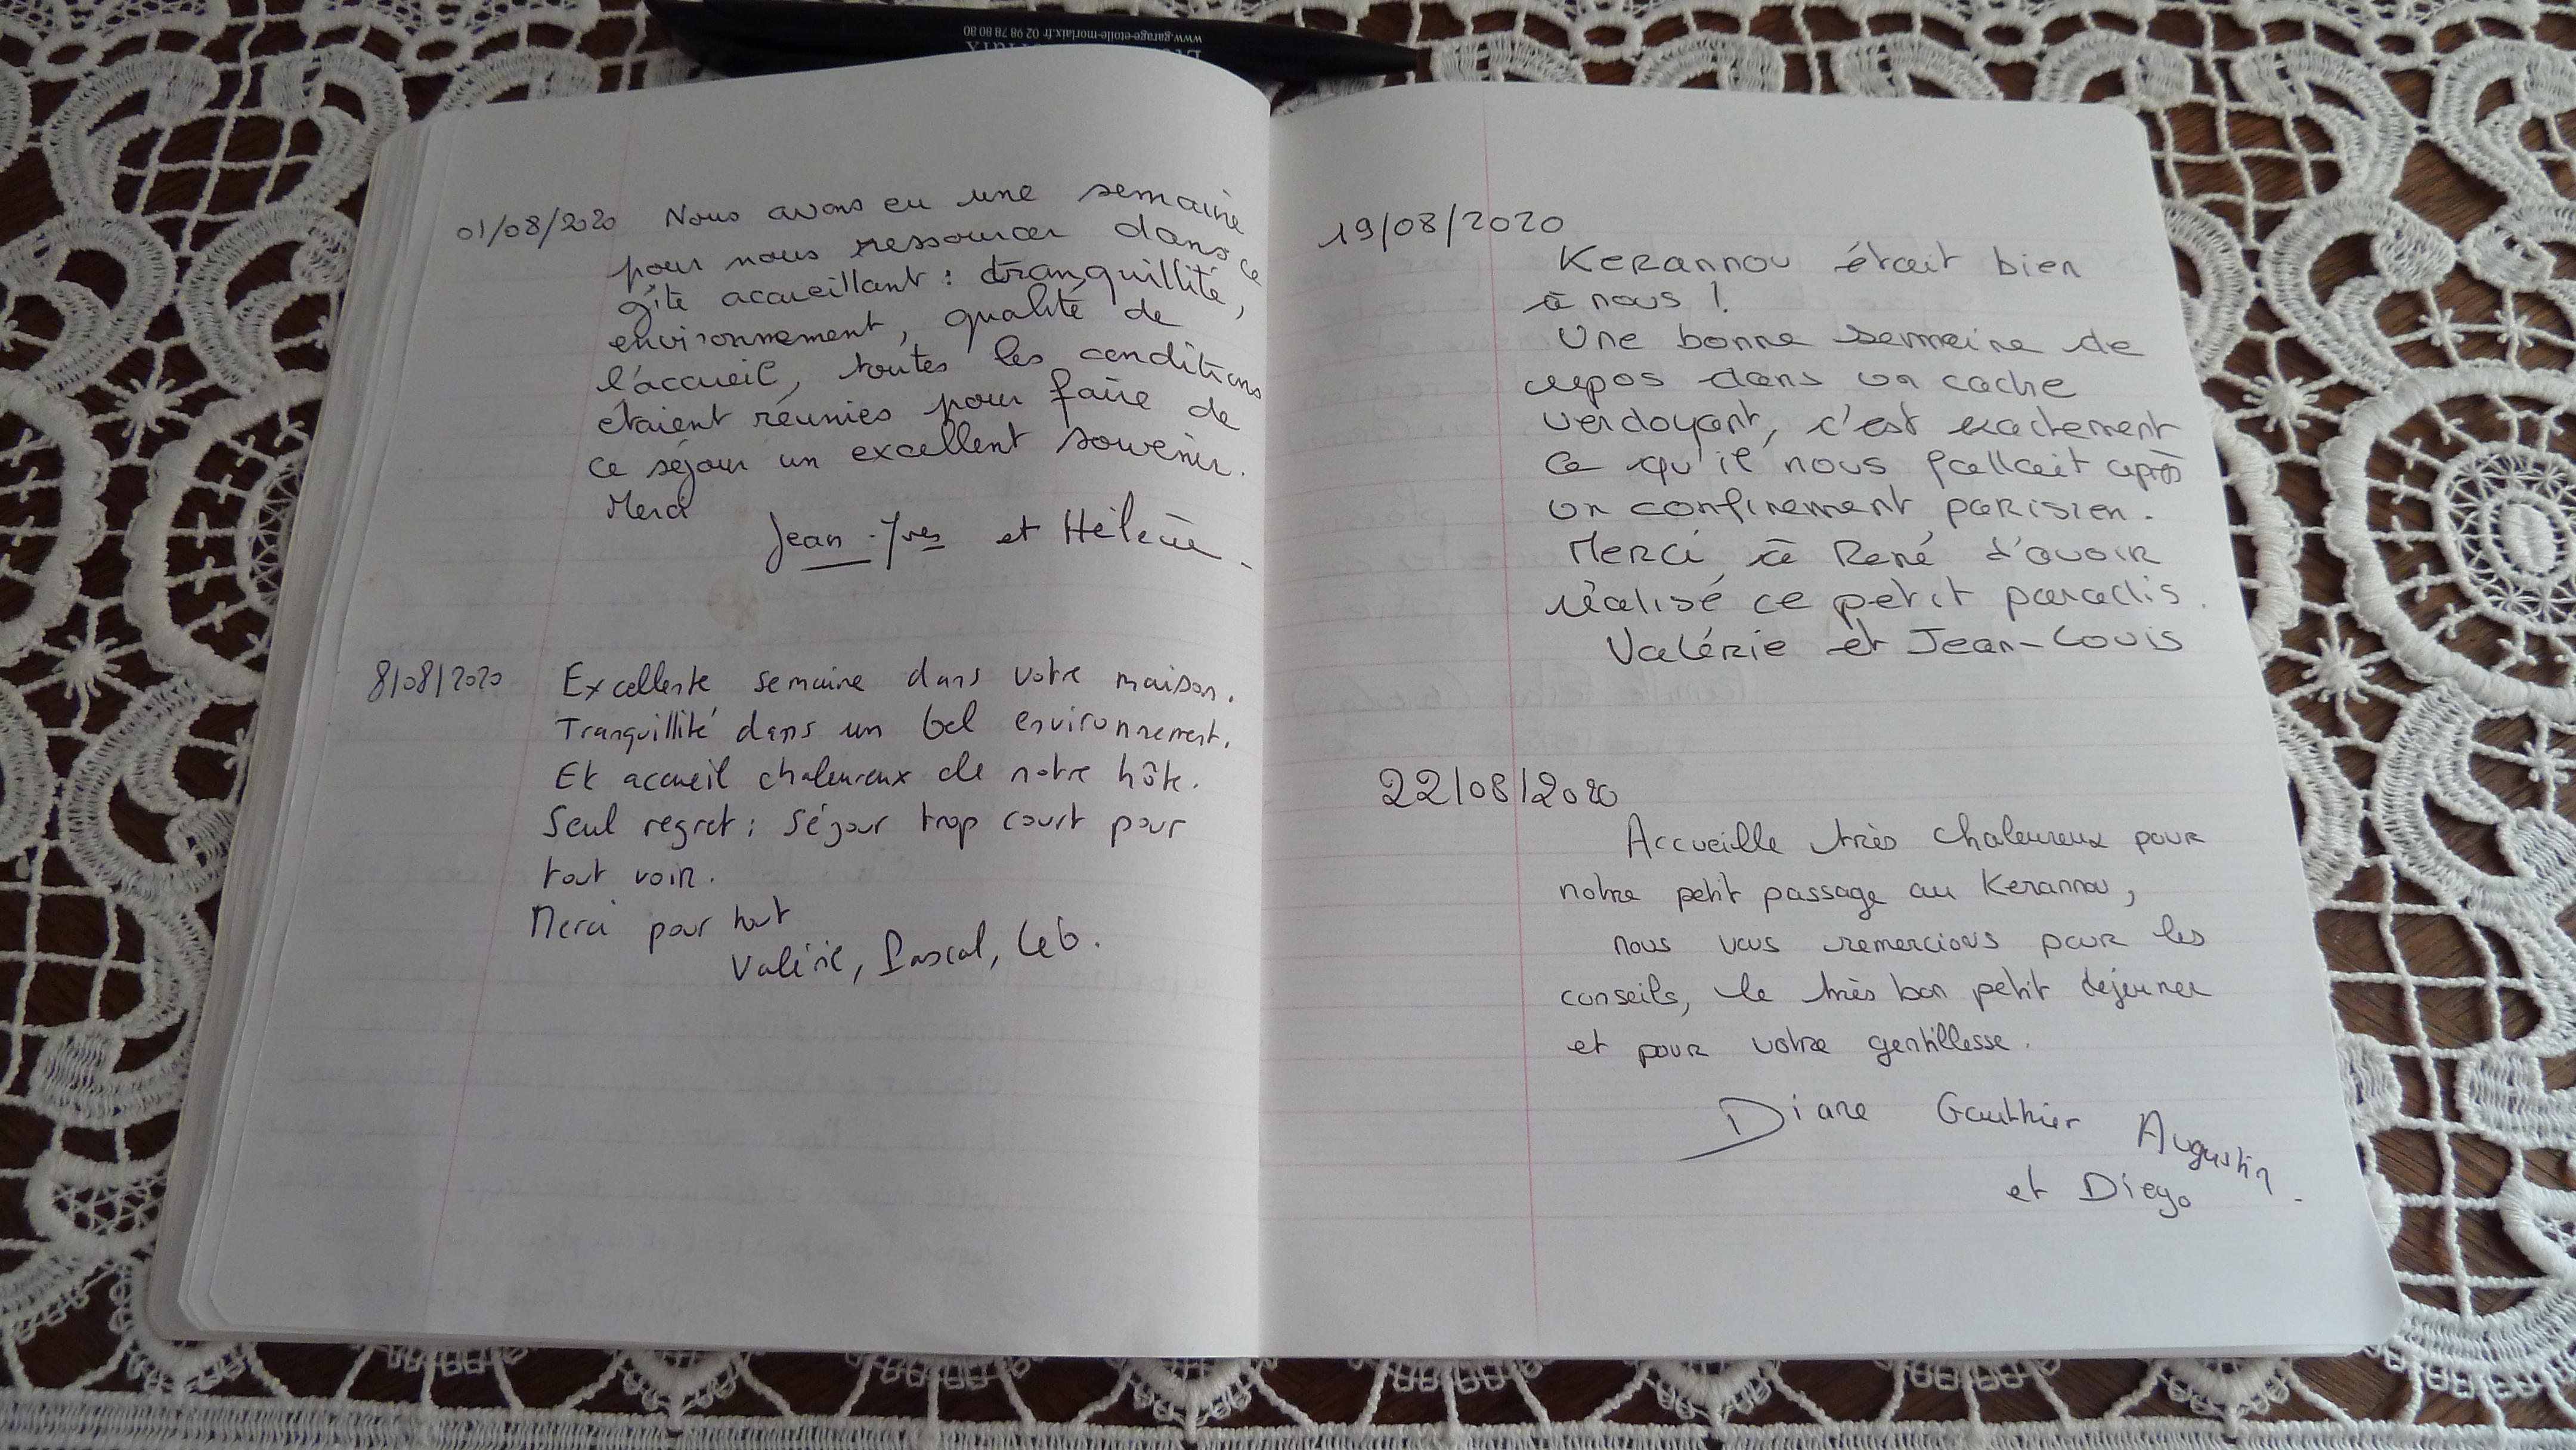 www.garage-etoile-morlaix.fr 02 98 78 80 80
01/08/2020 Nous avons eu une semaine
pour nous ressourcer dans ce
gîte accueillant : tranquillité,
environnement, qualité de
l'accueil, toutes les conditions
étaient réunies pour faire de
ce séjour un excellent souvenir.
Merci
Jean-Yves et Hélène.
8/08/2020 Excellente semaine dans votre maison.
Tranquillité dans un bel environnement.
Et accueil chaleureux de notre hôte.
Seul regret : séjour trop court pour
tout voir.
Merci pour tout
Valérie, Pascal,
19/08/2020
Kerannou était bien
à nous !
Une bonne semaine de
repos dans un cadre
verdoyant, c'est exactement
ce qu'il nous fallait après
un confinement parisien.
Merci à René d'avoir
réalisé ce petit paradis.
Valérie et Jean-Louis
22/08/2020
Accueille très chaleureux pour
notre petit passage au Kerannou,
nous vous remercions pour les
conseils, le très bon petit dejeuner
et pour votre gentillesse.
Diane Gauthier Augustin
et Diego